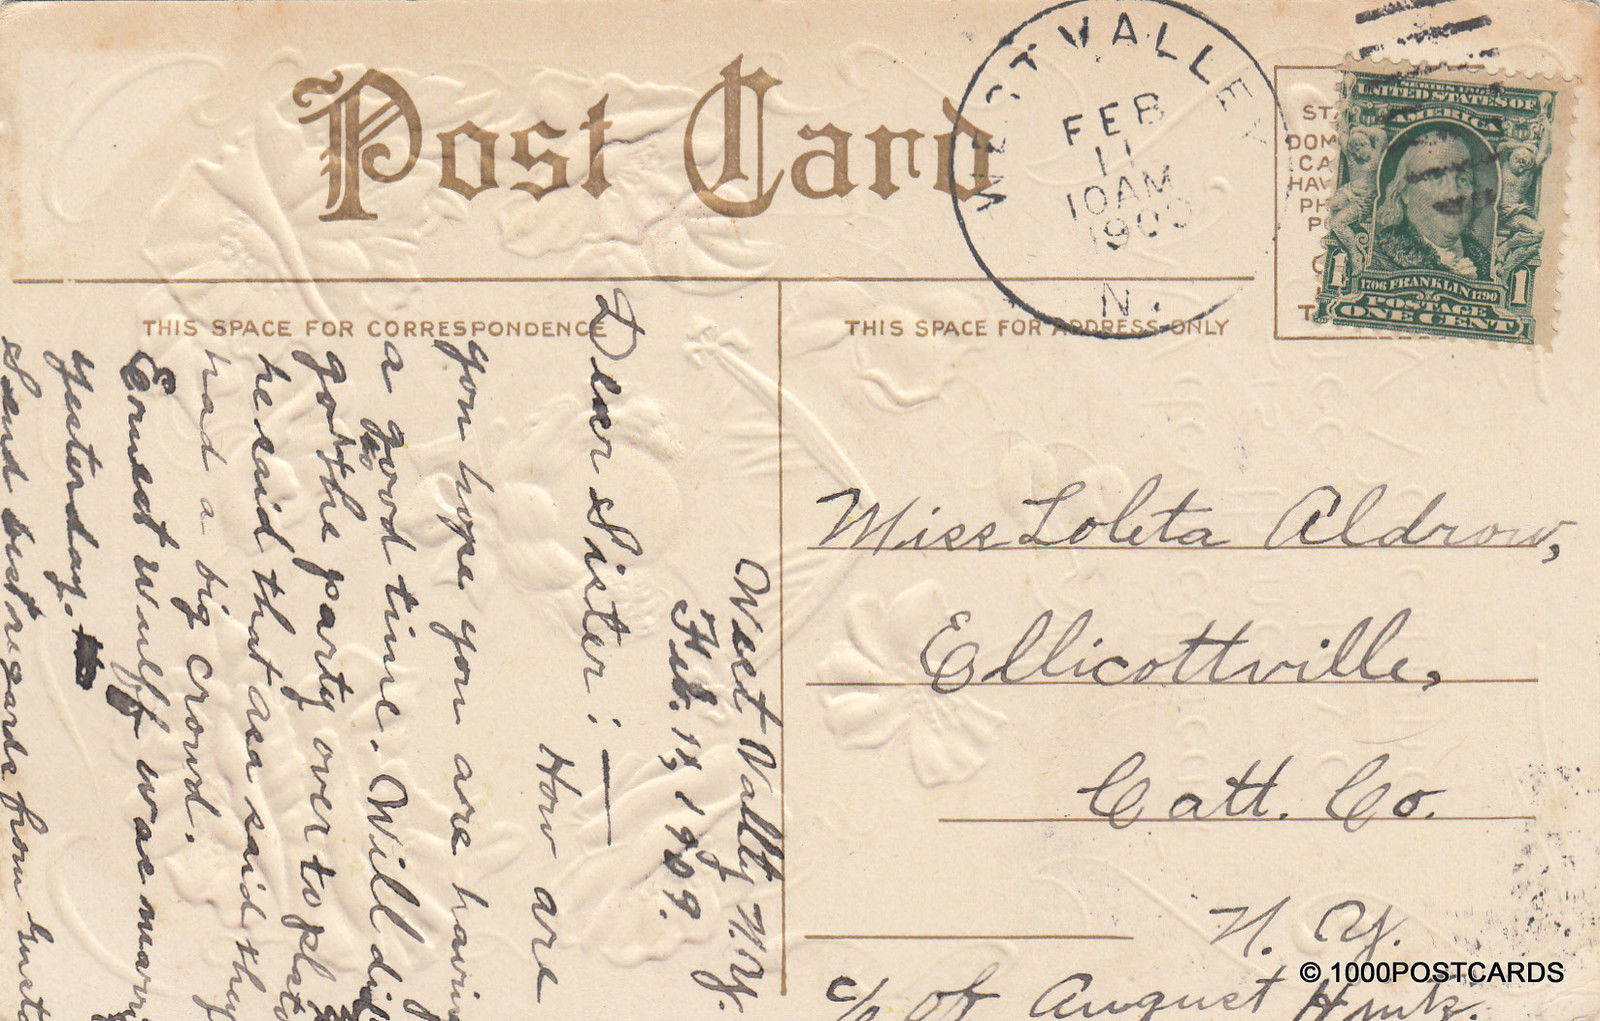 Post Card
WEST VALLEY
FEB
11
10AM
1909
N.
UNITED STATES OF
AMERICA
1706 FRANKLIN 1790
POSTAGE
1 1
ONE CENT
THIS SPACE FOR CORRESPONDENCE
THIS SPACE FOR ADDRESS ONLY
West Vally N.Y.
Feb. 11, 1909.
Dear Sister:—
How are
you hope you are having
a good time. Will did
go to the party over to
he said that asa said they
had a big crowd.
Ernest Wulff was
yesterday.
Send best regards from
Miss Loleta Aldrow,
Ellicottville,
Catt. Co.
N. Y.
c/o of August
© 1000POSTCARDS